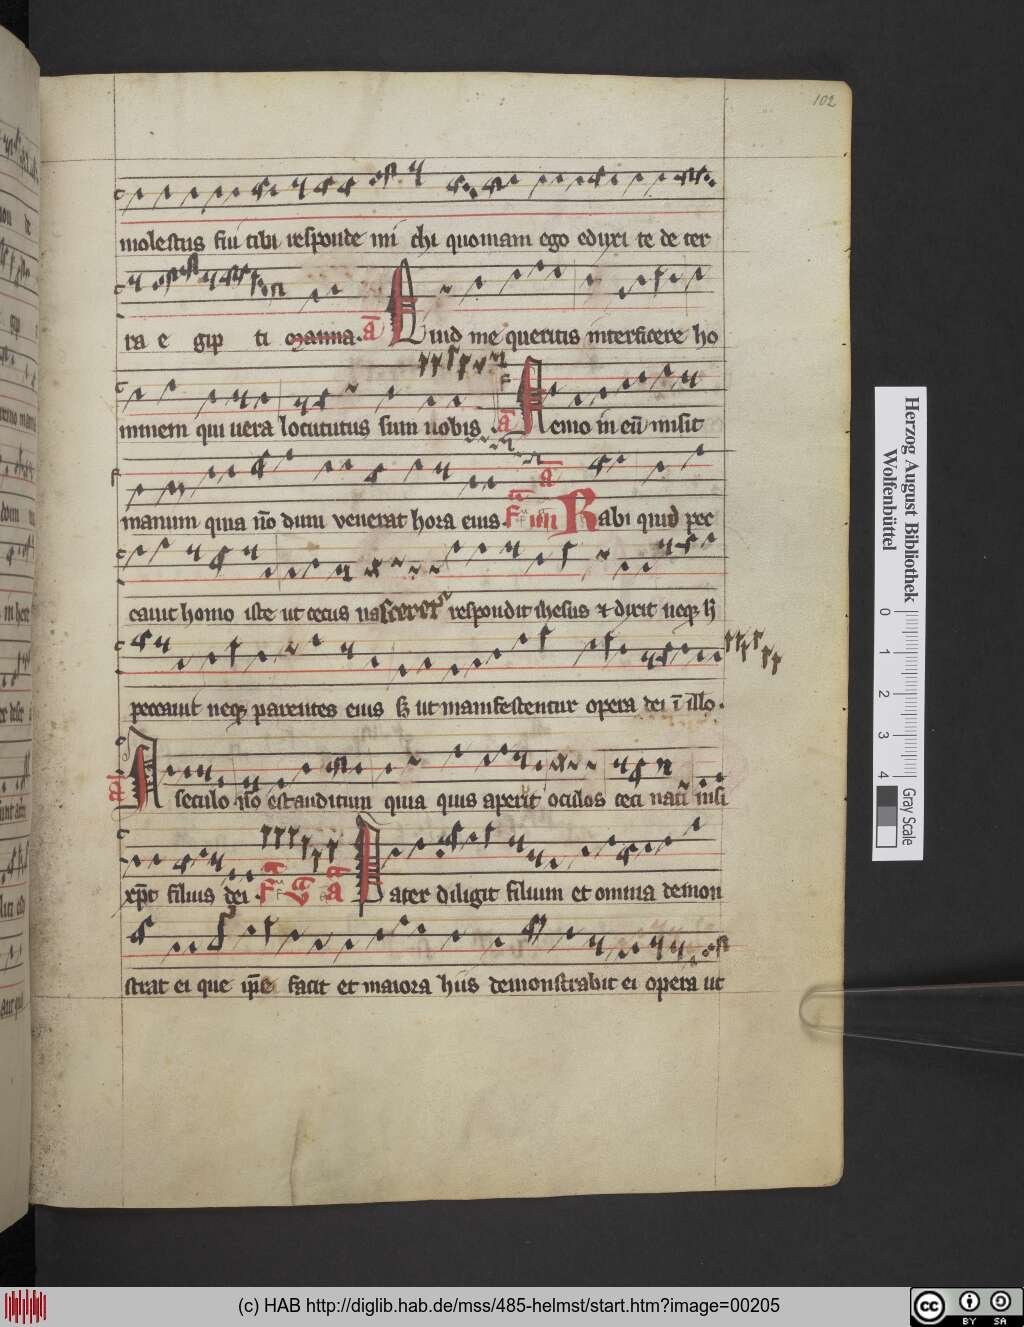 102
molestus fui tibi responde mi chi quoniam ego eduxi te de ter
ra e gip ti manna. a Quid me queritis interficere ho
minem qui uera locututus sum uobis. a Nemo in eū misit
manum quia nō dum venerat hora eius. F iiii a Rabi quid pec
cauit homo iste ut cecus nasceretur respondit ihesus & dixit neqꝫ h
peccauit neqꝫ parentes eius sꝫ ut manifestentur opera dei ī illo.
A seculo nō est auditum quia quis aperit oculos ceci nati nisi
xp̄c filius dei. F a Pater diligit filium et omnia demon
strat ei que ip̄e facit et maiora hiis demonstrabit ei opera ut
Herzog August Bibliothek
Wolfenbüttel
0 1 2 3 4
Gray Scale
(c) HAB http://diglib.hab.de/mss/485-helmst/start.htm?image=00205
cc BY SA